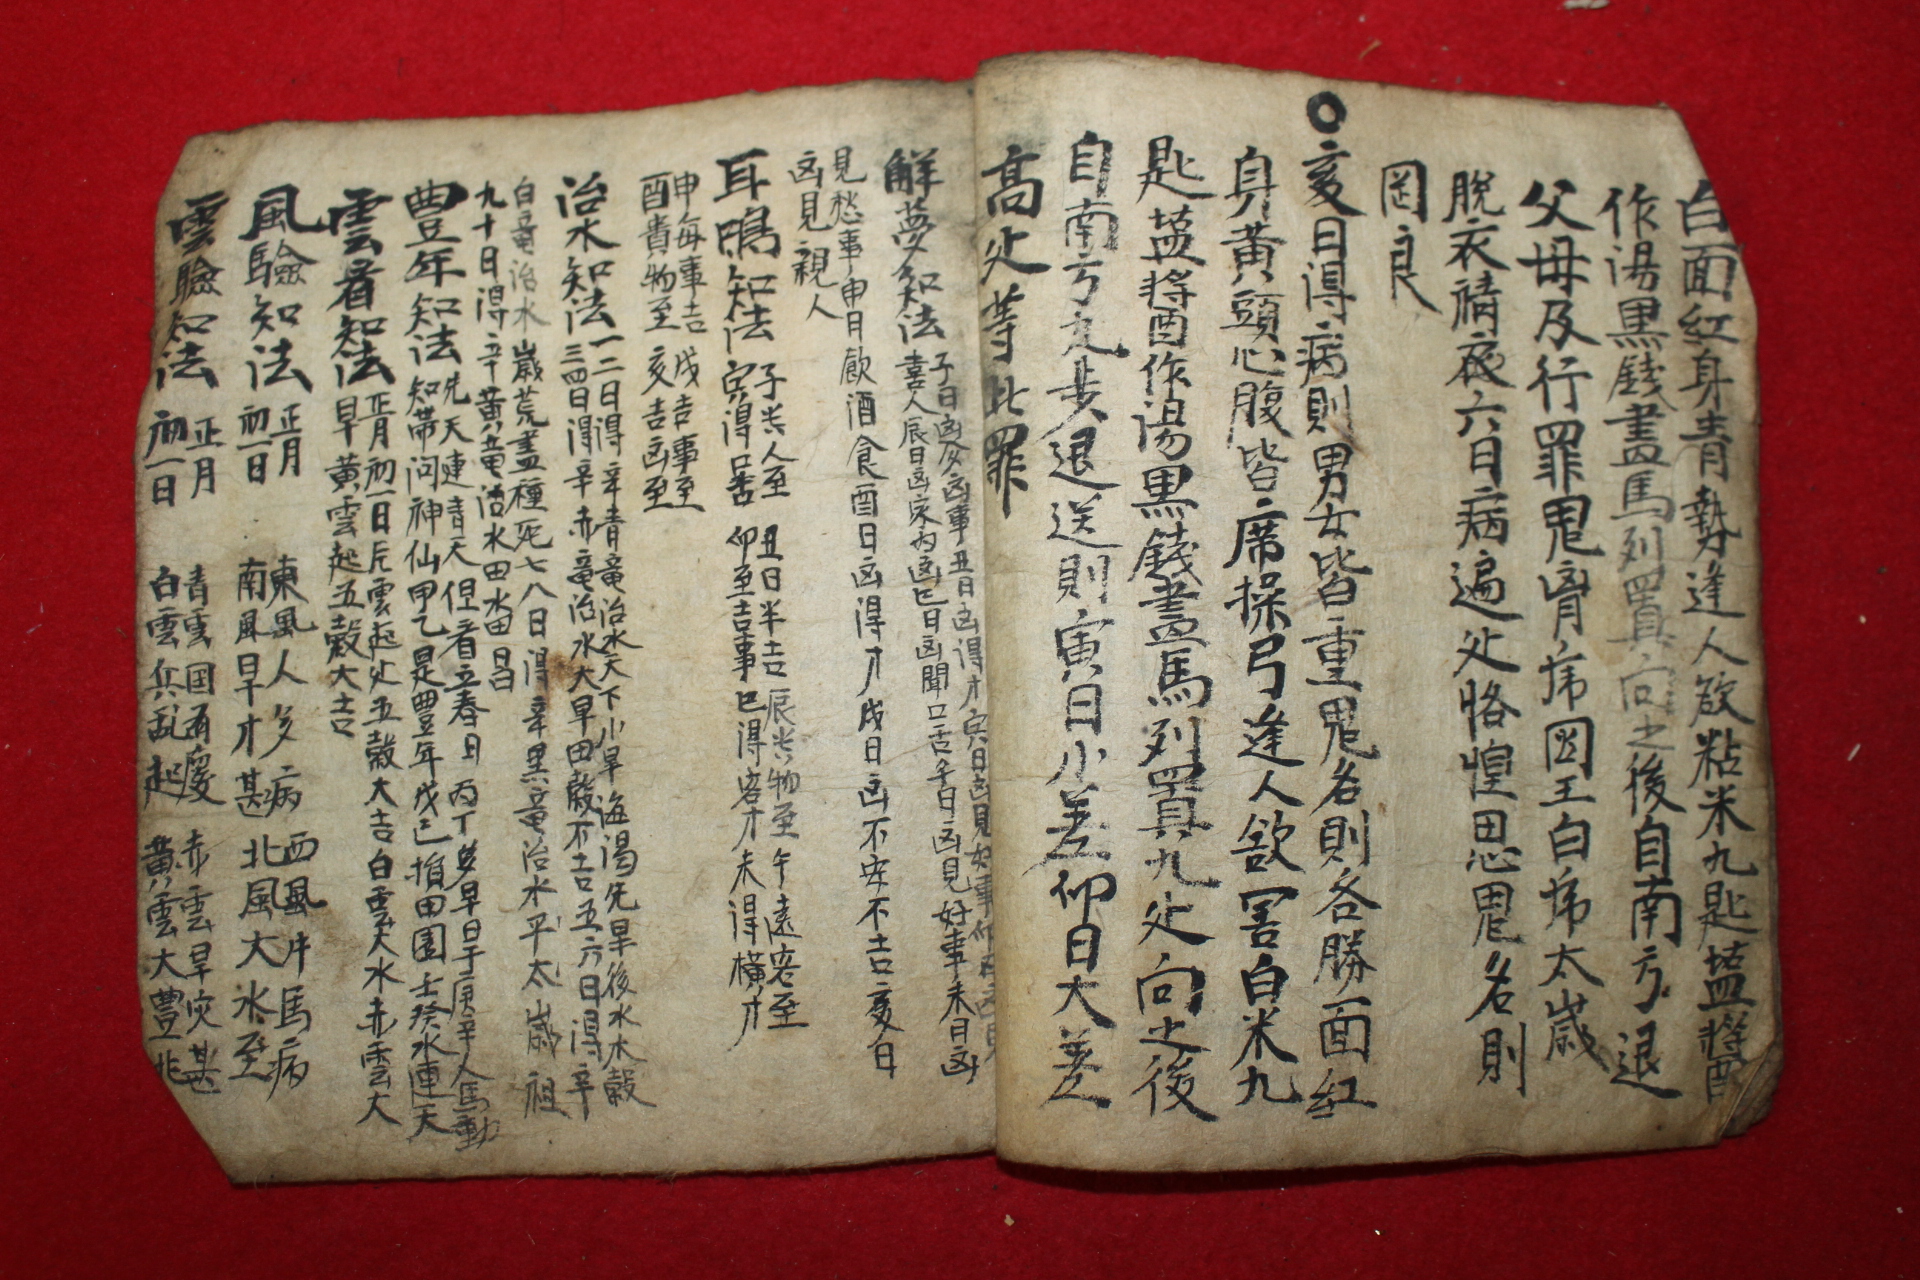 白面紅身青勢逢人欲粘米九匙塩將酉
作湯黑錢盖馬列置其向之後自南方退
父母及行罪鬼
国王白
太歲
脫衣
衣六日病遍处
鬼名則
罡良
亥日得病則男女皆重鬼名則各勝面紅
身黃頭心腹皆席操弓逢人欲害白米九
匙塩將酉作湯黑錢盖馬列置其九处向之後
自南方九步退送則寅日小差仰日大差
高处等此罪
解夢知法
子日凶
凶事丑日凶得才寅日凶見好事仰日
喜人辰日凶家內凶巳日凶聞口舌午日凶見好事未日凶
見愁事申日飲酒食酉日凶得才戌日凶不安不吉亥日
凶見親人
耳鳴知法
子
人至
丑日半吉
辰
物至
午遠客至
寅得
仰至吉事
巳得客才
未得橫才
申每事吉
戌吉事至
酉貴物至
亥吉凶至
治水知法
一二日得辛青竜治水天下小旱海渴先旱後水木穀
三四日得辛赤竜治水大旱田穀不吉五六日得辛
白竜治水歲荒盖種死七八日得辛黑竜治水平太歲祖
九十日得辛黃竜治水田畓昌
豊年知法
先天連青天但看立春日丙丁
旱日乎庚辛人馬動
知
問神仙甲乙是豊年戊己損田園壬癸水連天
雲看知法
正月初一日
雲起处五穀大吉白雲大水赤雲大
旱黃雲起五穀大吉
風驗知法
正月
初一日
東風人多病
西風牛馬病
南風旱才甚
北風大水至
雲驗知法
正月
初一日
青雲国有慶
赤雲旱灾甚
白雲兵乱起
黃雲大豊兆